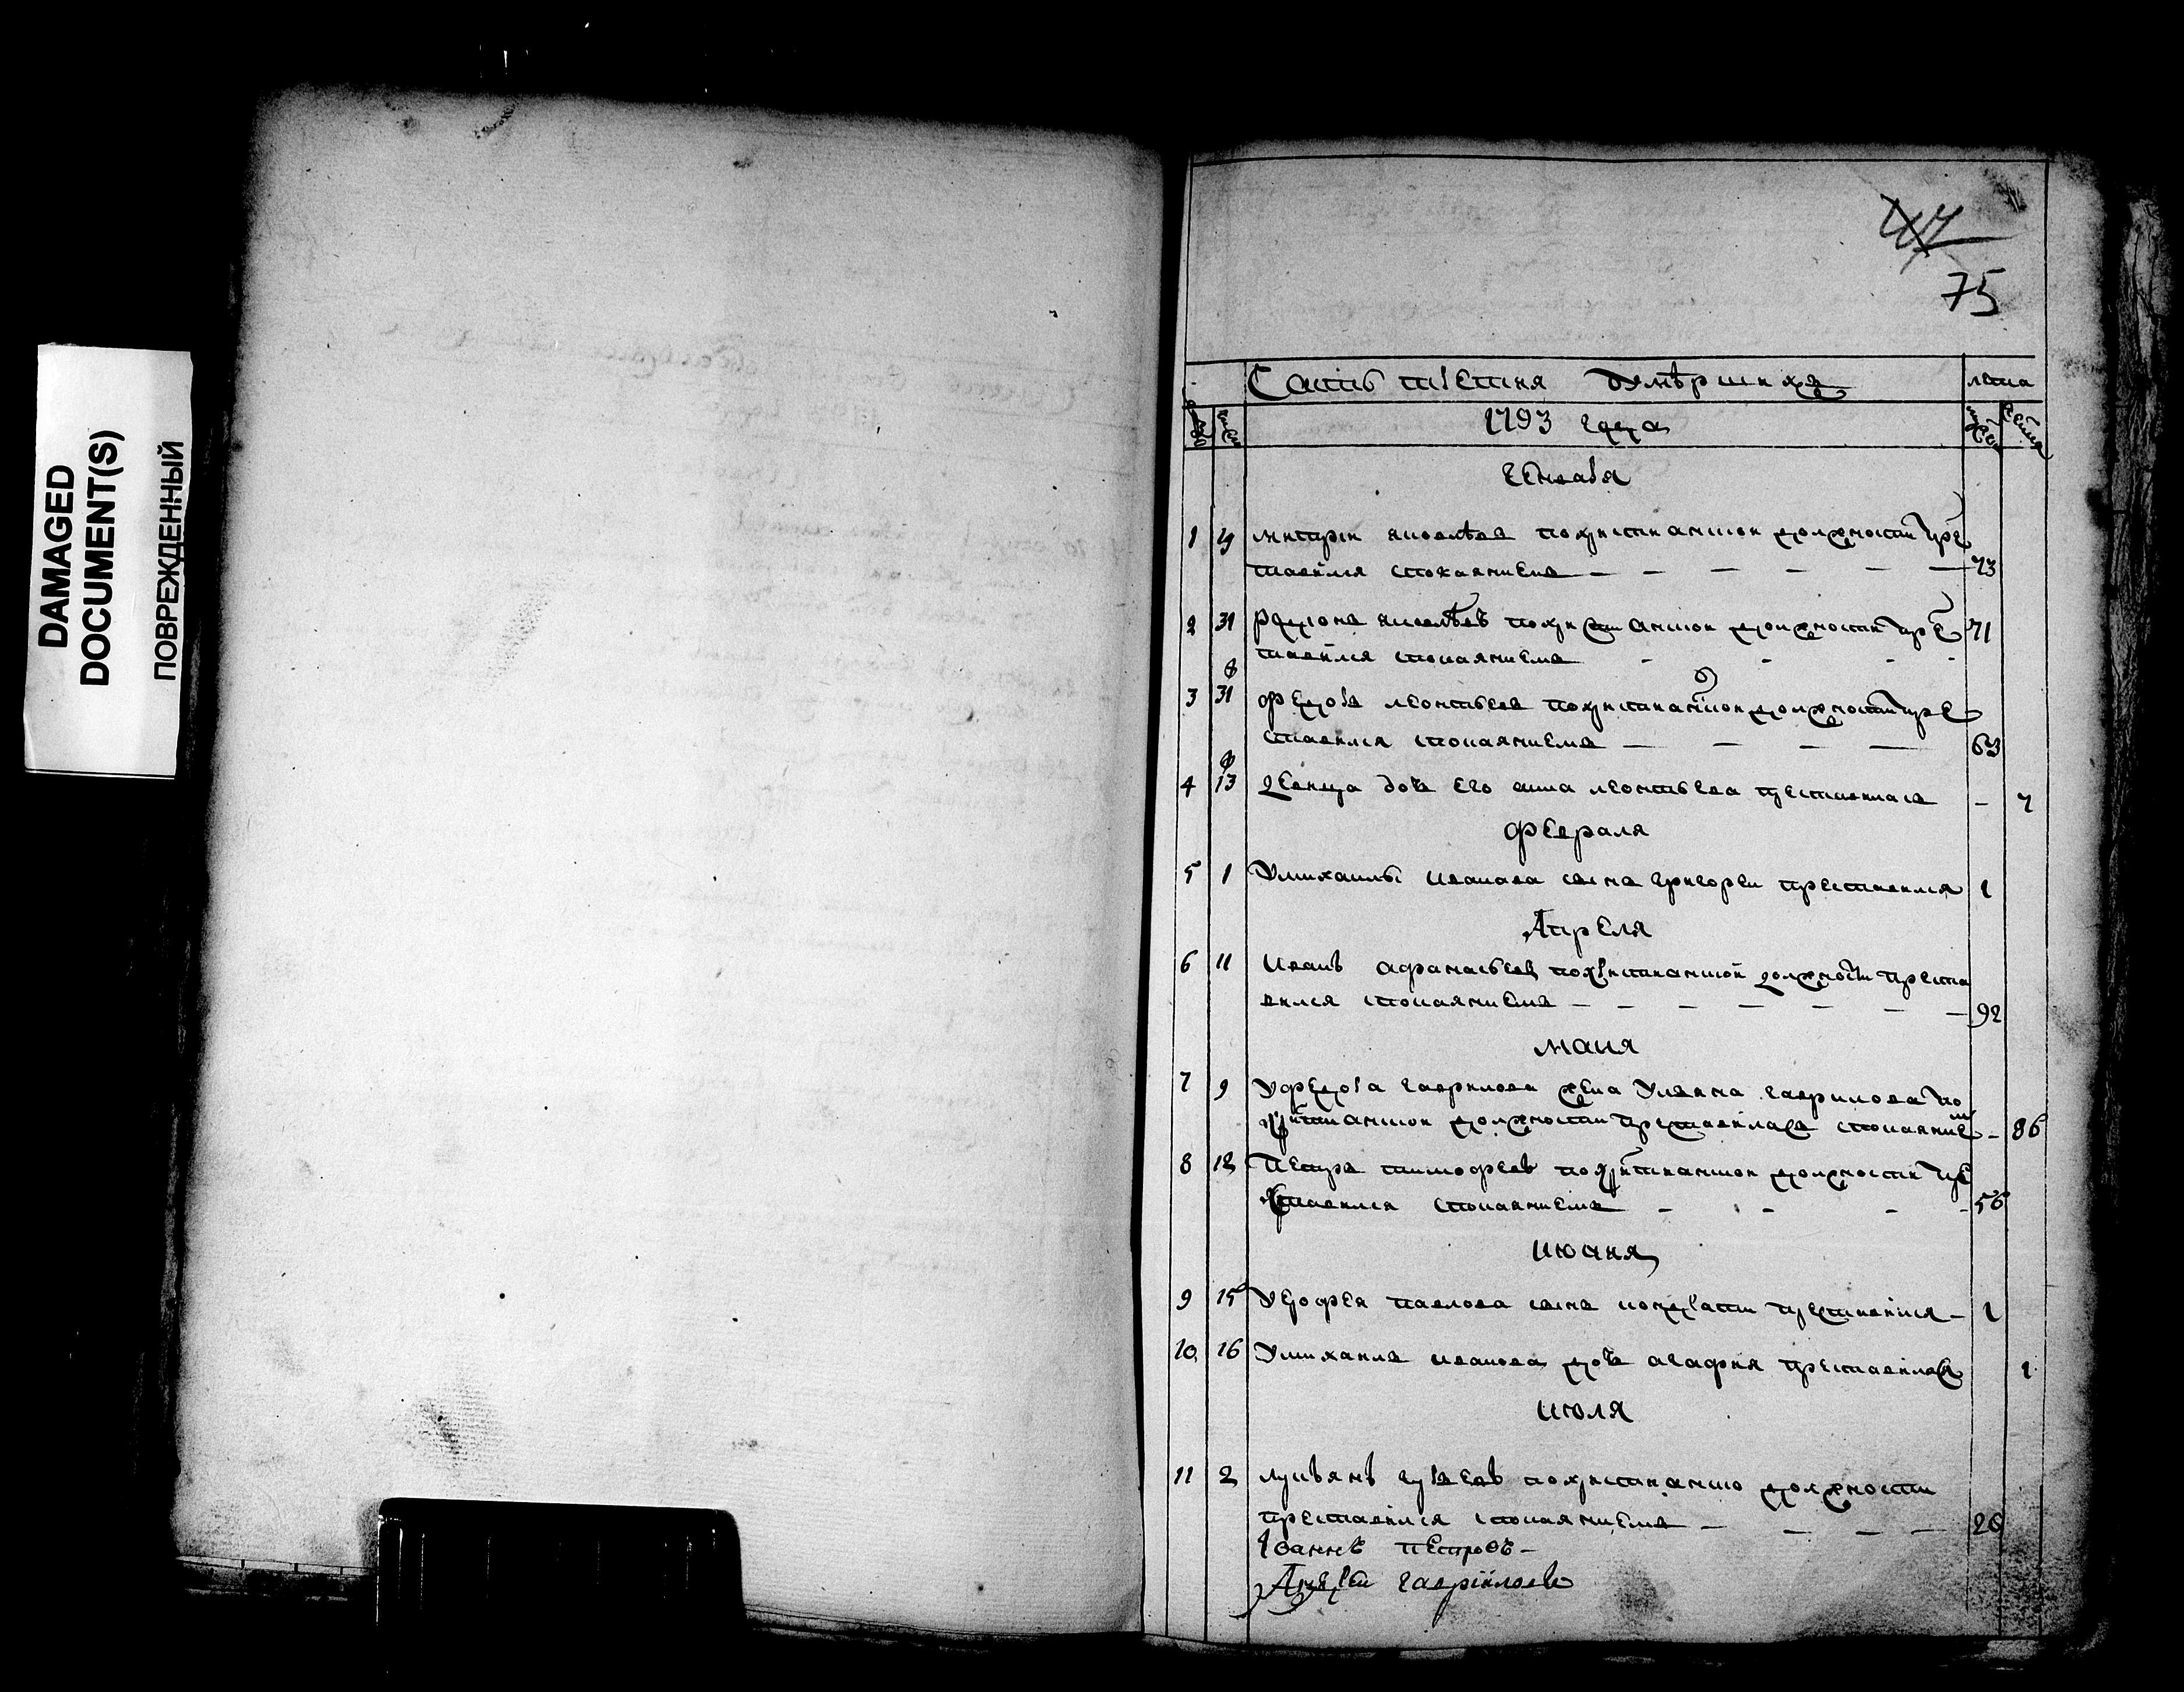 DAMAGED
DOCUMENT(S)
ПОВРЕЖДЕННЫЙ
75
Часть третия о умѣршихъ
лета
1793 года
Генваря
1 19 Дмитрей яковлѣвъ по христианской должности пре
ставился спокаяниемъ 73
2 31 Родионъ яковлѣвъ по христианской должности пре 71
ставился спокаяниемъ
3 31 Федоръ леонтьевъ по христианской должности пре
ставился спокаяниемъ 63
4 13 девица дочь его анна леонтьева преставилась 7
Февраля
5 1 У михаилы иванова сынъ григореи преставился 1
Апреля
6 11 Иванъ афанасьевъ по християнской должности преста
вился спокаяниемъ 92
Маия
7 9 У федора гаврилова жена Ульяна гаврилова по
християнской должности преставилась спокаянием 86
8 12 Петръ тимофеевъ по християнской должности пре
ставился спокаяниемъ 56
Июния
9 15 У ерофея павлова сынъ кондрати преставился 1
10 16 У михаила иванова дочь агафия преставилася 1
Июля
11 2 лукьянъ гурьевъ по християнско должности
преставился спокаяниемъ 26
Iоаннъ петровъ
Андрей гаврійловъ